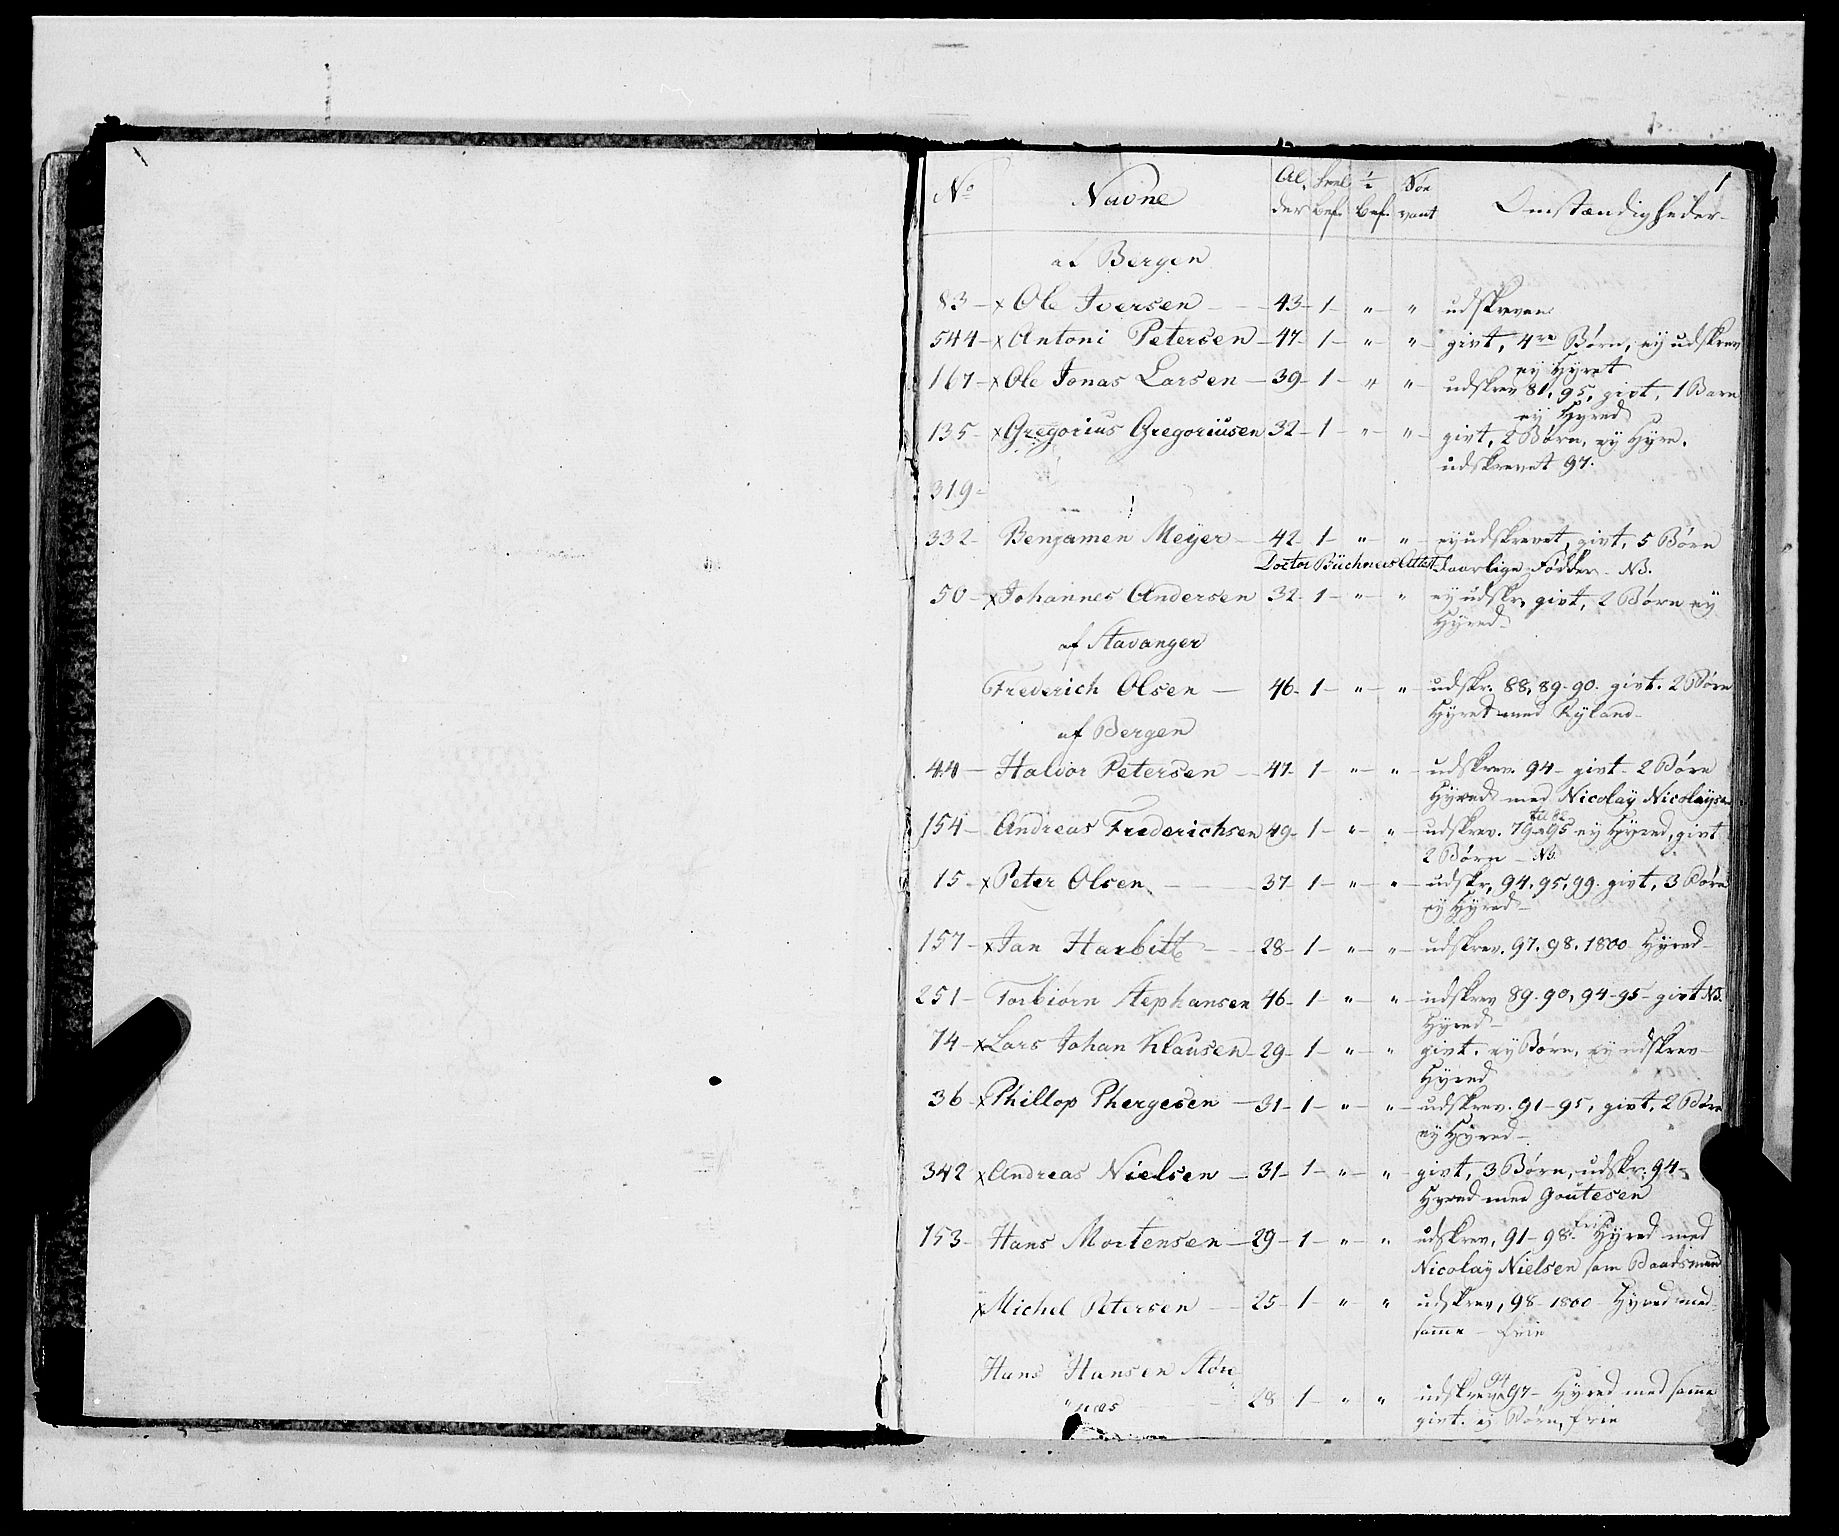 1
No Navne Al der heel bef. ½ bef. Søe vant Omstændigheder
af Bergen
83 – x Ole Iversen – 43 – 1 – " – " udskreven
544 – x Antoni Petersen – 47 – 1 – " – " givt, 4re Børn, ey udskrev
ey Hyret
167 – x Ole Jonas Larsen – 39 – 1 – " – " udskrev 81, 95, givt, 1 Barn
ey Hyred
135 – x Gregorius Gregoriusen 32 – 1 – " – " – givt, 2 Børn, eÿ Hyre.
udskrevet 97.
319 –
332 – Benjamen Meyer – 42 – 1 – " – " – ey udskrevet, givt, 5 Børn
Doctor Büchners Attest daarlige Fødder – NB.
50 – x Johannes Andersen 32 – 1 – " – " ey udskr, givt, 2 Børn ey
Hyred –
af Stavanger
Frederich Olsen – 46 – 1 – " – " – udskr. 88, 89 – 90. givt. 2 Børn
Hyret med Ryland –
af Bergen
44 – Haldor Petersen – 47 – 1 – " – " – udskrev. 94 – givt – 2 Børn
Hyred med Nicolaÿ Nicolaysen
154 – Andreas Frederichsen 49 – 1 – " – " – udskrev. 79 til 95 ey Hyred, givt
2 Børn – NB.
15 – x Peter Olsen – 37 – 1 – " – " – udskr, 94, 95, 99. givt, 3 Børn
eÿ Hyred –
157 – x Jan Harbitt – 28 – 1 – " – " – udskrev. 97. 98. 1800 Hyred
251 – Torbiørn Stephansen 46 – 1 – " – " – udskrev 89. 90, 94 – 95 – givt NB.
Hyred –
74 – x Lars Johan Klausen – 29 – 1 – " – " givt. ey Børn, ey udskrev –
Hyred
36 x Phillop Phergesen – 31 – 1 – " – " – udskrev. 91 – 95, givt, 2 Børn
eÿ Hyred –
342 x Andreas Nielsen – 31 – 1 – " – " – givt, 3 Børn, udskr. 94 –
Hyred med Goutesen
153 – Hans Mortensen – 29 – 1 – " – " udskrev, 91 – 98. frie Hyred med
Nicolaÿ Nielsen som Baadsmand
x Michel Petersen – 25 – 1 – " – " udskrev, 98 – 1800 – Hyred med
samme – frie
Hans Hansen Støre
næs – 28 – 1 – " – " udskreven 94 97 – Hyred med samme
givt. ej Børn, frie